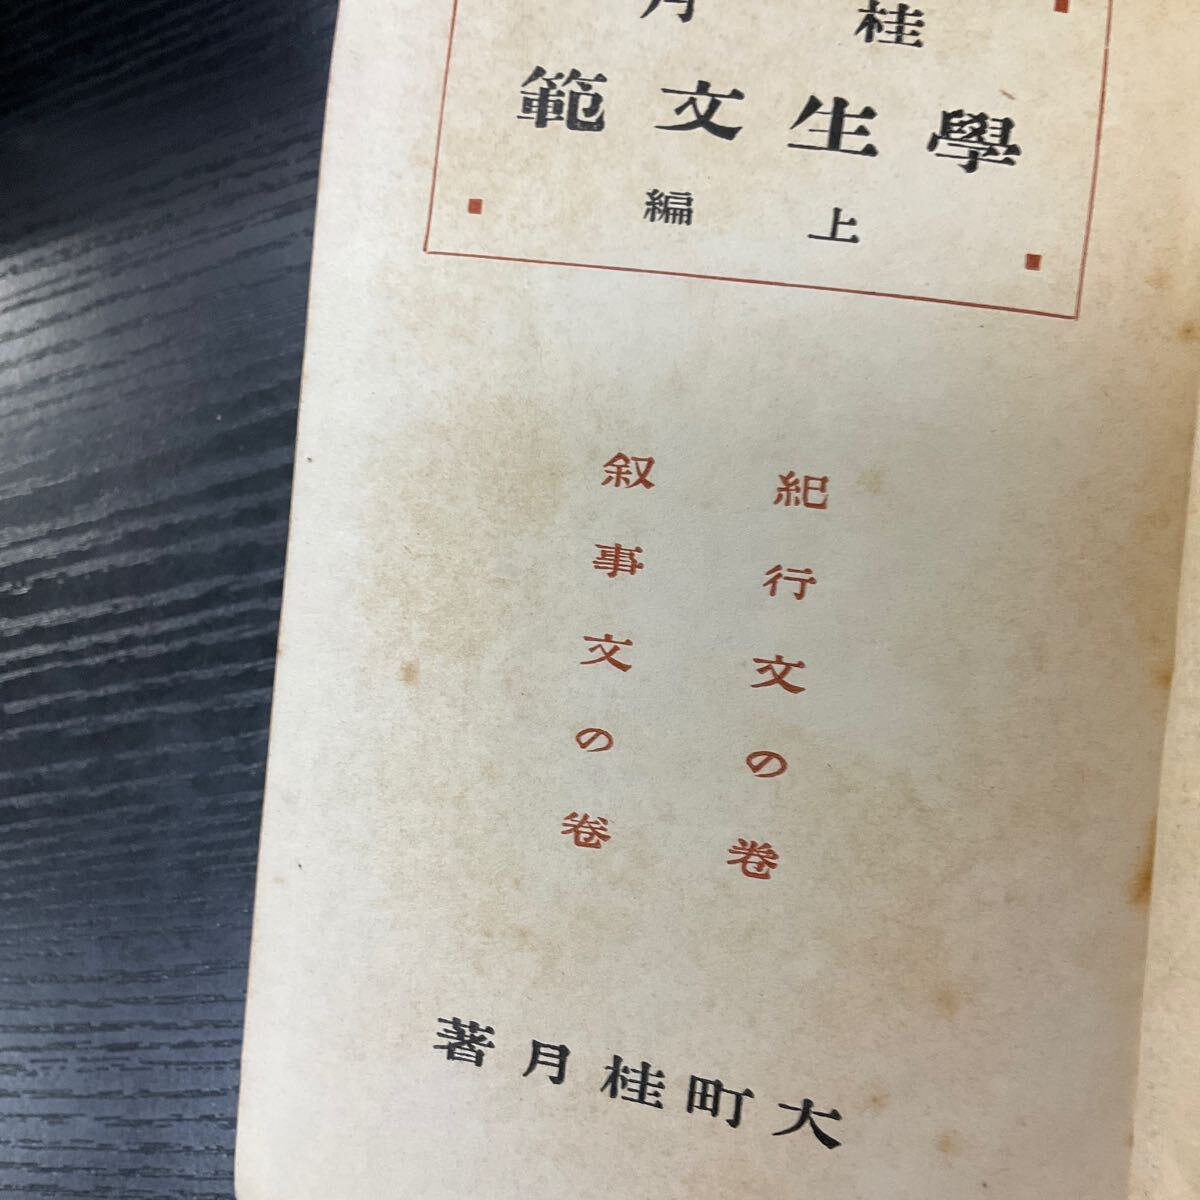 桂月
學生文範
上編
紀行文の巻
叙事文の卷
大町桂月著